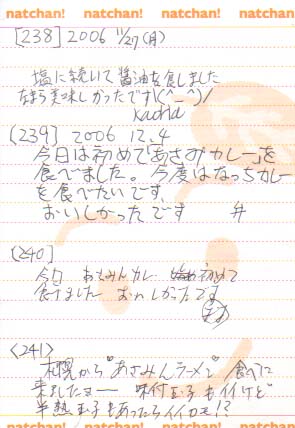 natchan! natchan! natchan! natchan!
[238] 2006 11/27(月)
塩に続いて醤油を食しました
なまら美味しかったです\(^_^)/
(239) 2006 12.4
今日は初めて「あさみカレー」を
食べました。今度はなっちカレー
を食べたいです。
おいしかったです #
(240)
今日 あさみんカレー 初めて
食べました おいしかったです
<241>
札幌から"あさみんラーメン" 食べに
来ましたョー 味付玉子もイイけど
半熟玉子もあったらイイカモ!?
natchan! natchan! natchan! natchan!